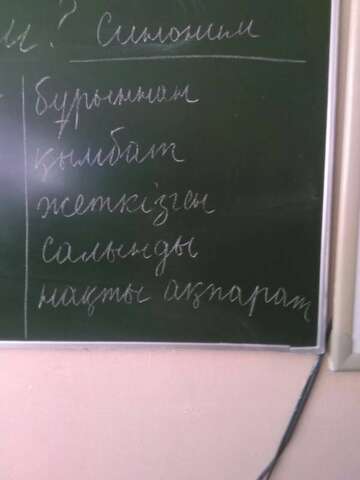 и? Синоним
бұрыннан
қымбат
жеткізген
салынды
нақты ақпарат